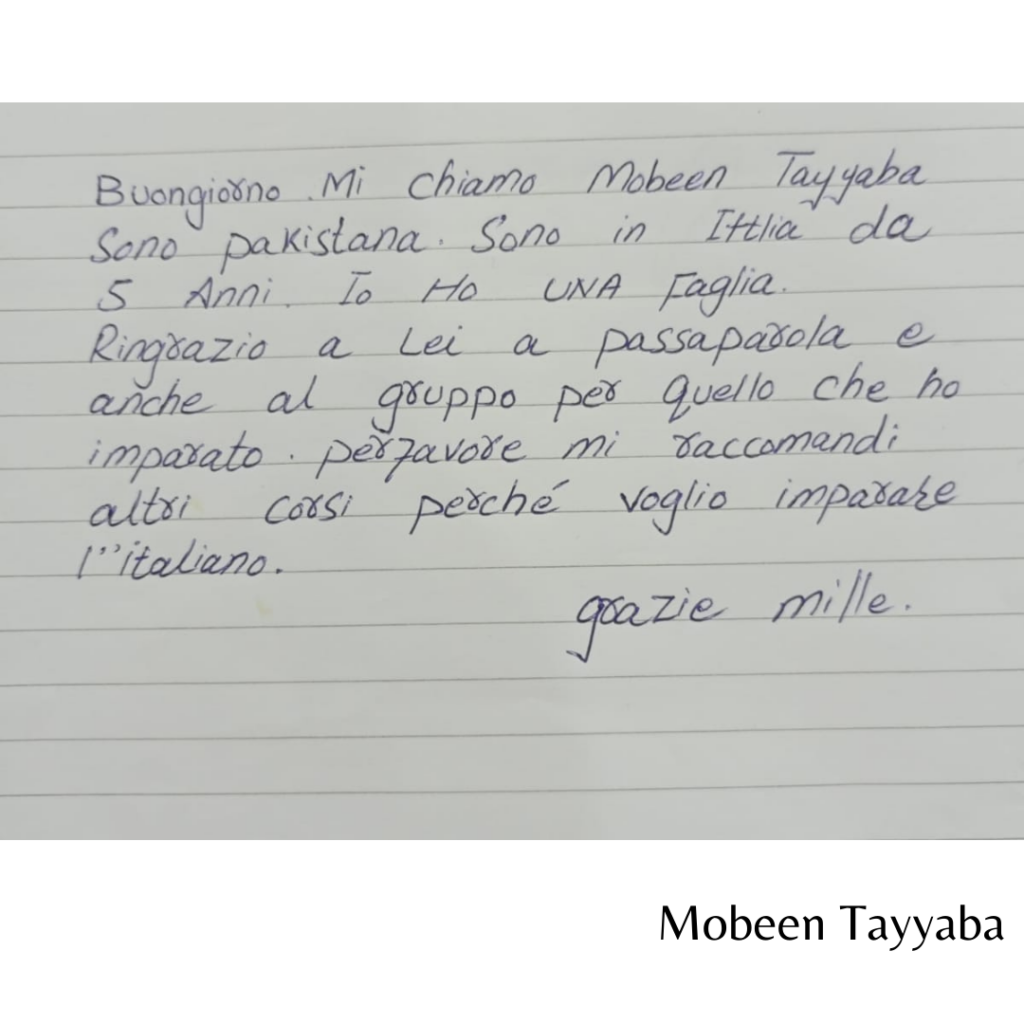 Buongiorno. Mi chiamo Mobeen Tayyaba
Sono pakistana. Sono in Ittlia da
5 Anni. Io Ho UNA Faglia.
Ringrazio a Lei a passaparola e
anche al gruppo per quello che ho
imparato. perfavore mi raccomandi
altri corsi perché voglio imparare
l''italiano.
grazie mille.
Mobeen Tayyaba